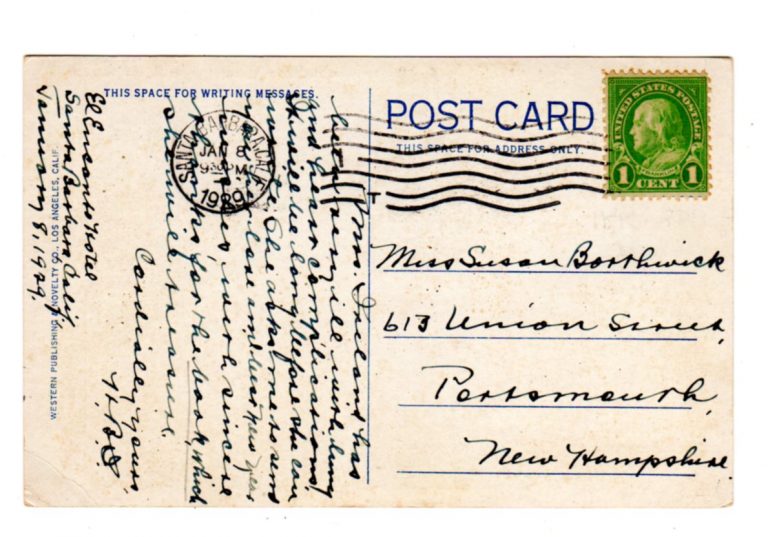 THIS SPACE FOR WRITING MESSAGES.
POST CARD
THIS SPACE FOR ADDRESS ONLY.
UNITED STATES POSTAGE
FRANKLIN
1 CENT 1
SANTA BARBARA, CALIF.
JAN 8
PM
1929
El Encanto Hotel
Santa Barbara Calif.
January 8, 1929.
Mrs. Ireland has
been very ill with lung
and heart complications
It will be long before she can
write. She asks me to send
love and best New Year
wishes, with sincere
thanks for the book, which
she will treasure.
Cordially yours
Miss Susan Borthwick
613 Union Street,
Portsmouth,
New Hampshire.
WESTERN PUBLISHING & NOVELTY CO., LOS ANGELES, CALIF.